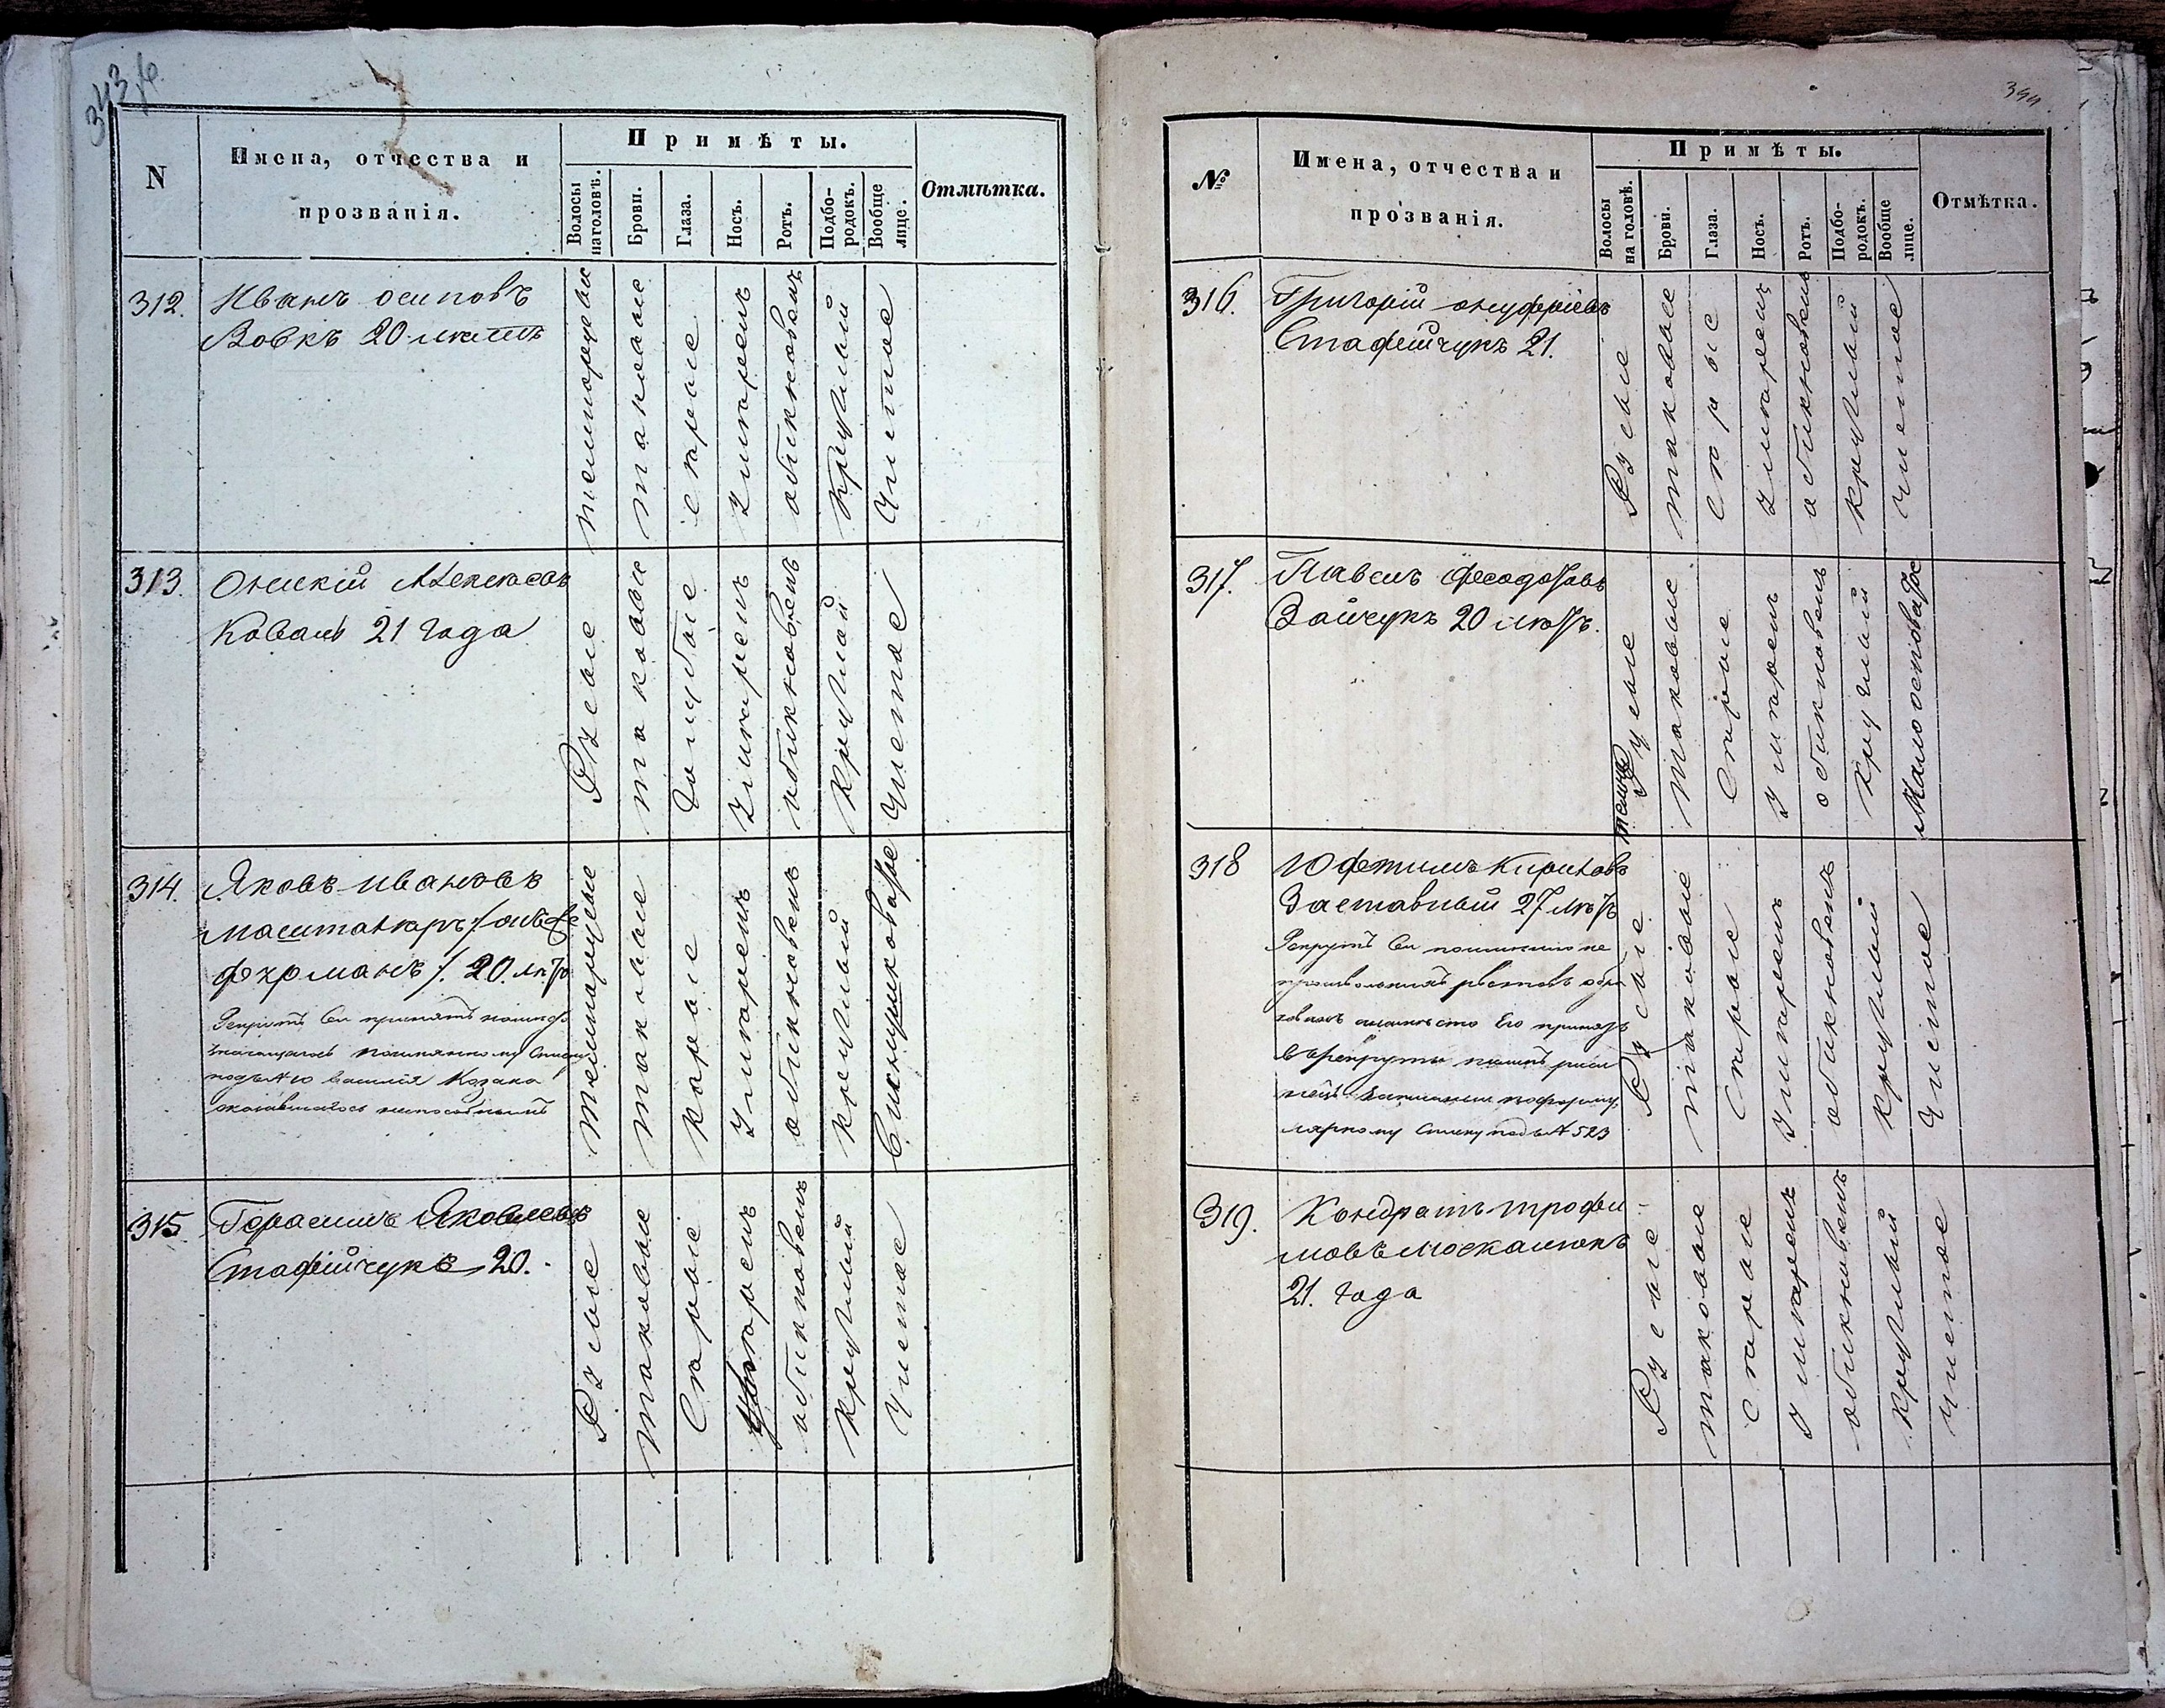 343
N
Имена, отчества и
прозванія.
Примѣты.
Волосы
на головѣ.
Брови.
Глаза.
Носъ.
Ротъ.
Подбо-
родокъ.
Вообще
лице.
Отмѣтка.
312.
Иванъ осиповъ
Вовкъ 20 лѣтъ
темнорусые
таковые
серые
умѣренъ
обикновенъ
круглый
чистое
313.
Алексѣевъ
Коваль 21 года
Русые
таковые
Голубые
умѣренъ
обикновенъ
круглый
чистое
314.
Яковъ ивановъ
онъже
фурманъ /. 20. лѣтъ
Рекрутъ сей принятъ
подъ № 10 василія Козака
оказавшагось неспособнымъ
темнорусые
таковые
карые
умѣренъ
обикновенъ
круглый
315
Герасимъ Яковлевъ
Стафійчукъ 20.
Русые
таковые
Серые
умѣренъ
обикновенъ
круглый
чистое
344
№
Имена, отчества и
прозванія.
Примѣты.
Волосы
на головѣ.
Брови.
Глаза.
Носъ.
Ротъ.
Подбо-
родокъ.
Вообще
лице.
Отмѣтка.
316.
Григорій онуфріевъ
Стафейчукъ 21.
Русые
таковые
серые
умѣренъ
обикновенъ
круглый
чистое
317.
Павелъ Феодотовъ
Зайчукъ 20 лѣтъ.
темно
Русые
таковые
Серые
умѣренъ
обикновенъ
круглый
Малоосповатое
318
Юфтимъ Кириловъ
Заставный 27 лѣтъ
Рекрутъ сей
Его принять
въ рекруты
по форму-
лярному списку подъ № 523
Русые
таковые
Серые
умѣренъ
обикновенъ
круглый
Чистое
319.
Кондратъ трофи-
мовъ москалюкъ
21. года
Русые
таковые
серые
умѣренъ
обикновенъ
круглый
чистое